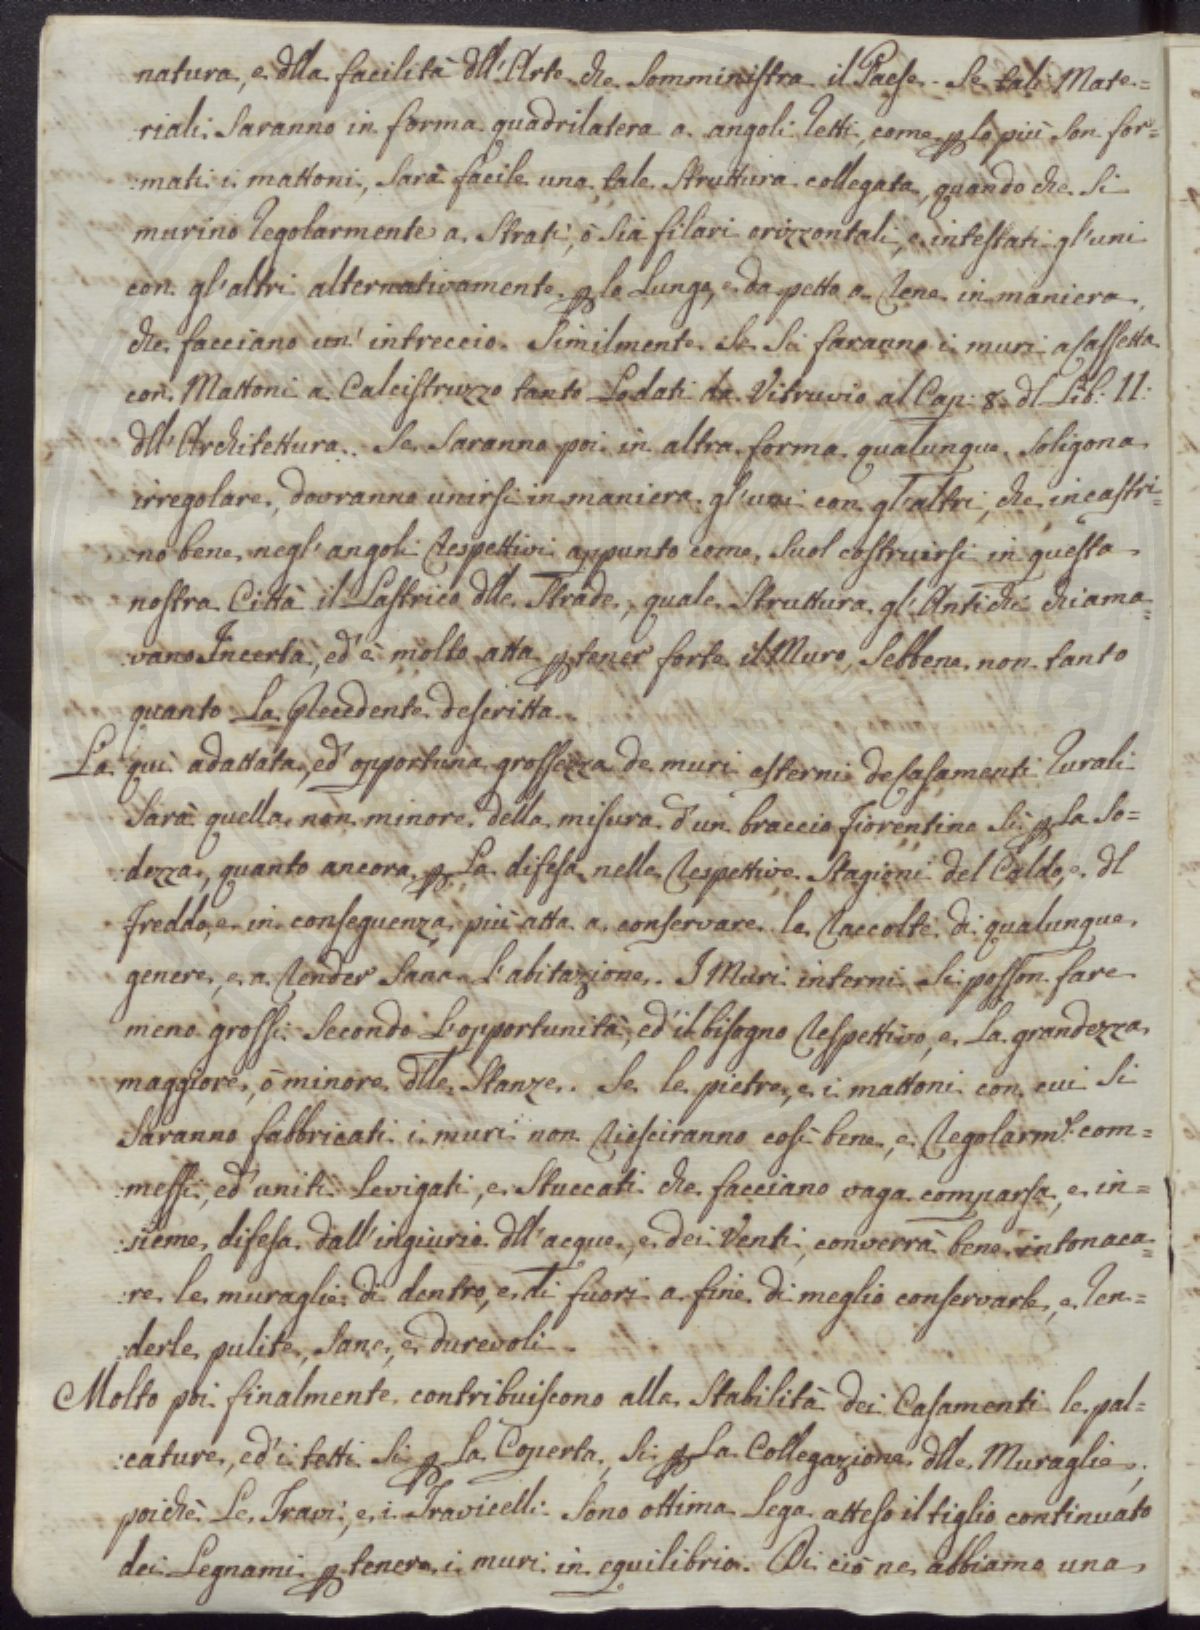 natura, e dlla facilità dll'Arte che somministra il Paese. Se tali Mate-=
:riali saranno in forma quadrilatera a angoli retti, come p lo più son for=
:mati i mattoni, sarà facile una tale struttura collegata, quando che si
murino regolarmente a strati, ò sia filari orizzontali, e intestati gl'uni
con gl'altri alternativamente p lo lungo, e da petto a rene in maniera,
che facciano un' intreccio. Similmente se si faranno i muri a cassetta
con Mattoni a Calcistruzzo tanto Lodati da Vitruvio al Cap: 8. dl Lib: II:
dll'Architettura. Se saranno poi in altra forma qualunque Poligona
irregolare, dovranno unirsi in maniera gl'uni con gl'altri, che incastri=
no bene negl'angoli respettivi appunto come suol costruirsi in questa
nostra Città il Lastrico dlle Strade, quale struttura gl'Antichi chiama=
:vano Incerta, ed'è molto atta p tener forte il Muro, sebbene non tanto
quanto La Precedente descritta.
La qui adattata, ed' opportuna grossezza de muri esterni de Casamenti rurali
sarà quella non minore della misura d'un braccio fiorentino sì p La So=
:dezza, quanto ancora p La difesa nelle respettive Stagioni del Caldo, e dl
freddo, e in conseguenza più atta a conservare le raccolte di qualunque
genere, e a render sana L'abitazione. I Muri interni si posson fare
meno grossi secondo L'opportunità, ed'il bisogno respettivo, e La grandezza
maggiore, ò minore dlle Stanze. Se le pietre, e i mattoni con cui si
saranno fabbricati i muri non riesciranno così bene, e regolarmᵗᵉ com=
:messi, ed'uniti Levigati, e Stuccati che facciano vaga comparsa, e in=
:sieme difesa dall'ingiurie dll'acque, e dei Venti, converrà bene intonaca=
:re le muraglie di dentro, e di fuori a fine di meglio conservarle, e ren=
:derle pulite, sane, e durevoli.
Molto poi finalmente contribuiscono alla Stabilità dei Casamenti le pal=
:cature, ed'i tetti sì p La Coperta, sì p La Collegazione dlle Muraglie,
poichè Le Travi, e i Travicelli sono ottima Lega atteso il tiglio continuato
dei Legnami p tenere i muri in equilibrio. Di ciò ne abbiamo una